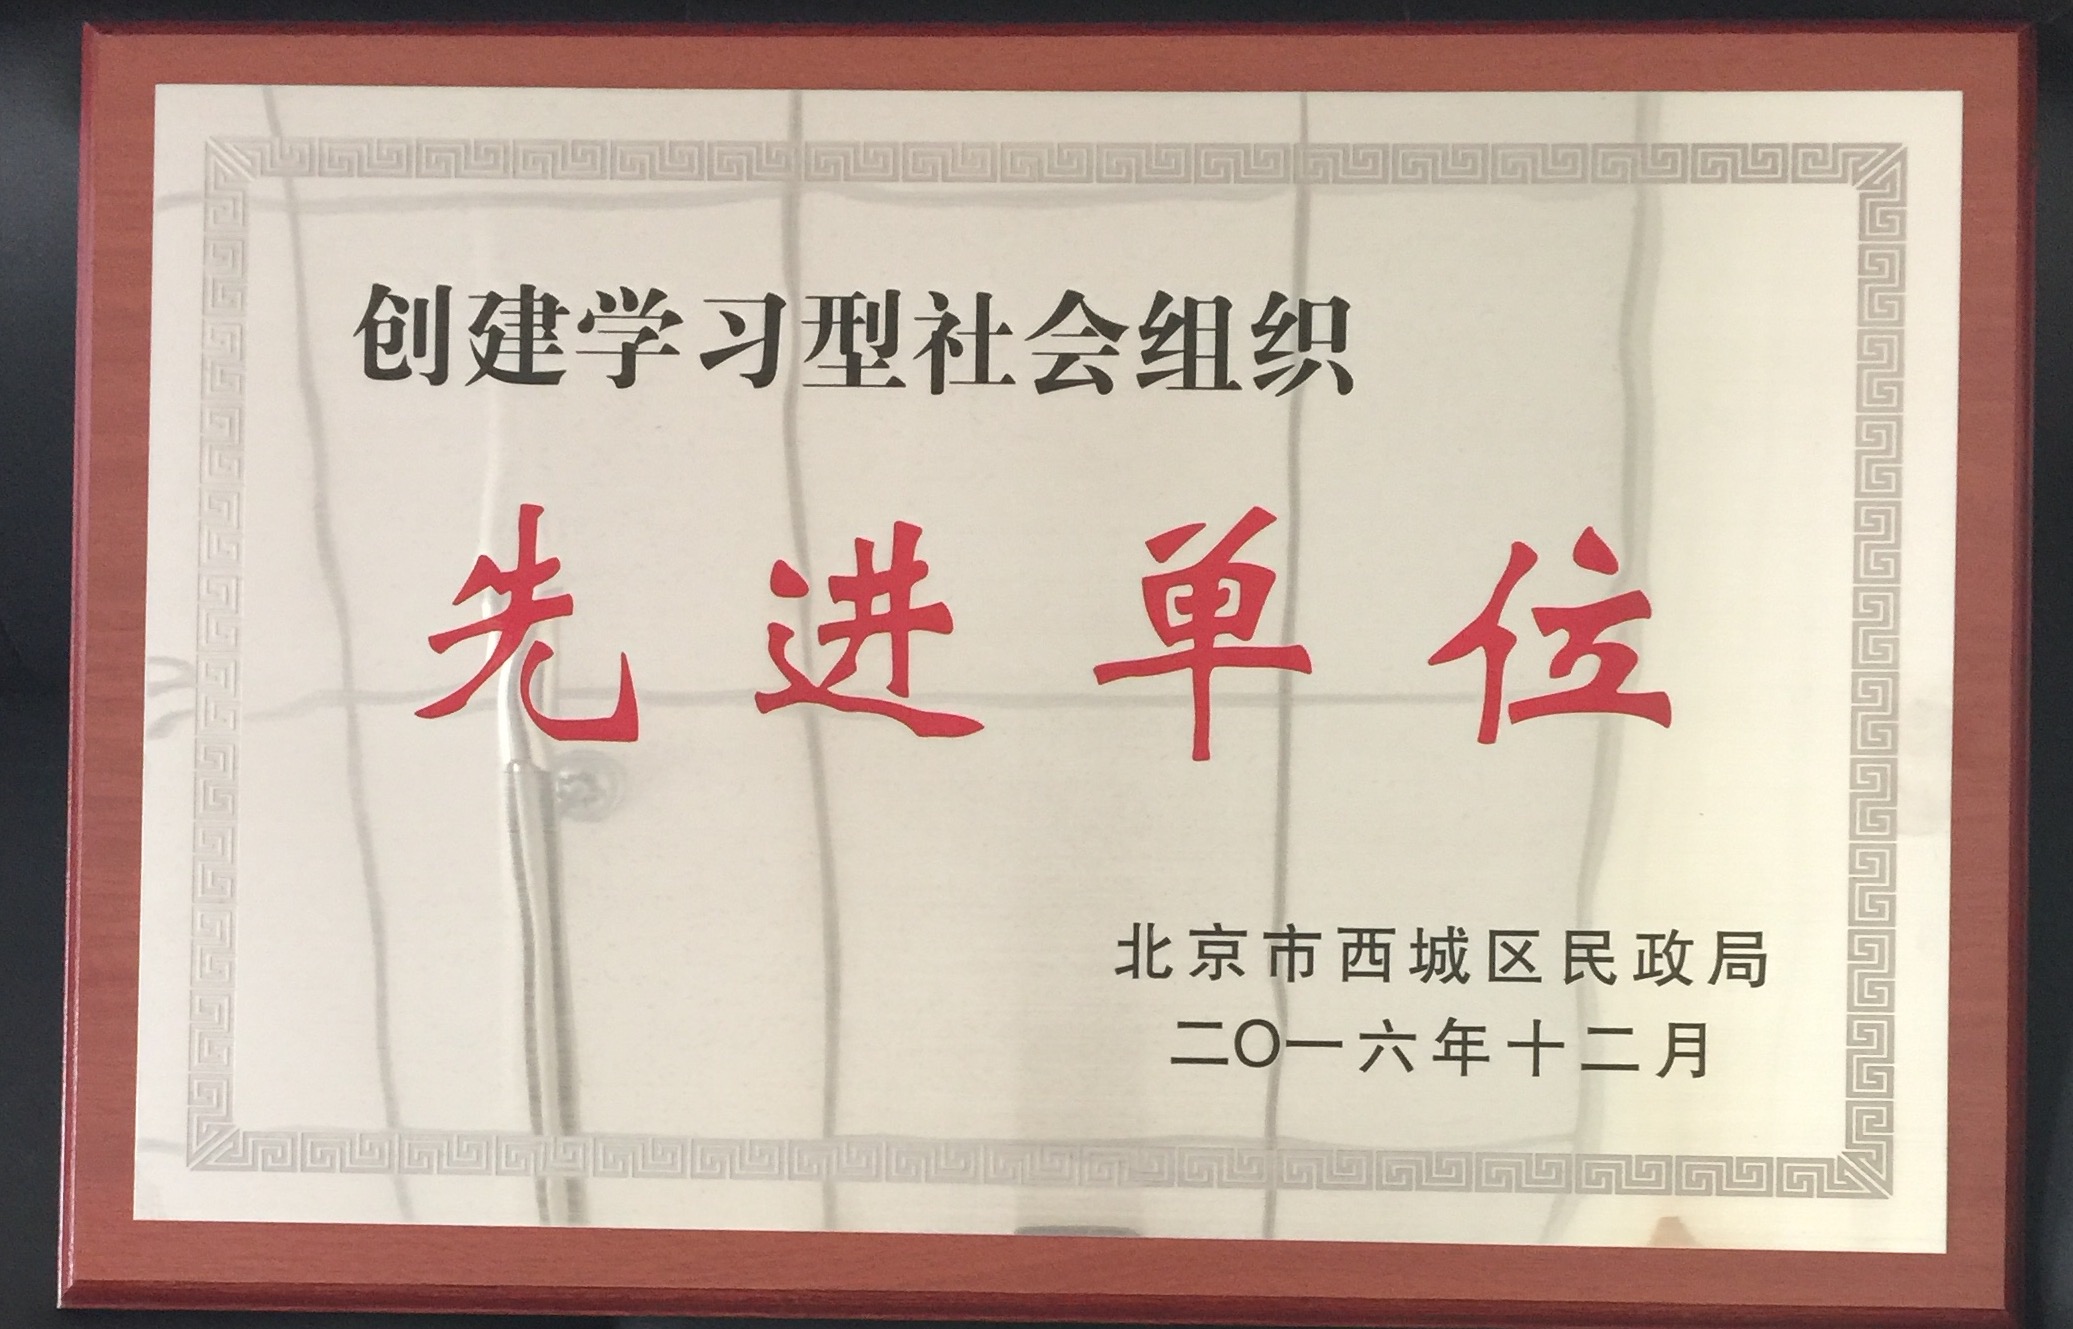 创建学习型社会组织
先进单位
北京市西城区民政局
二〇一六年十二月